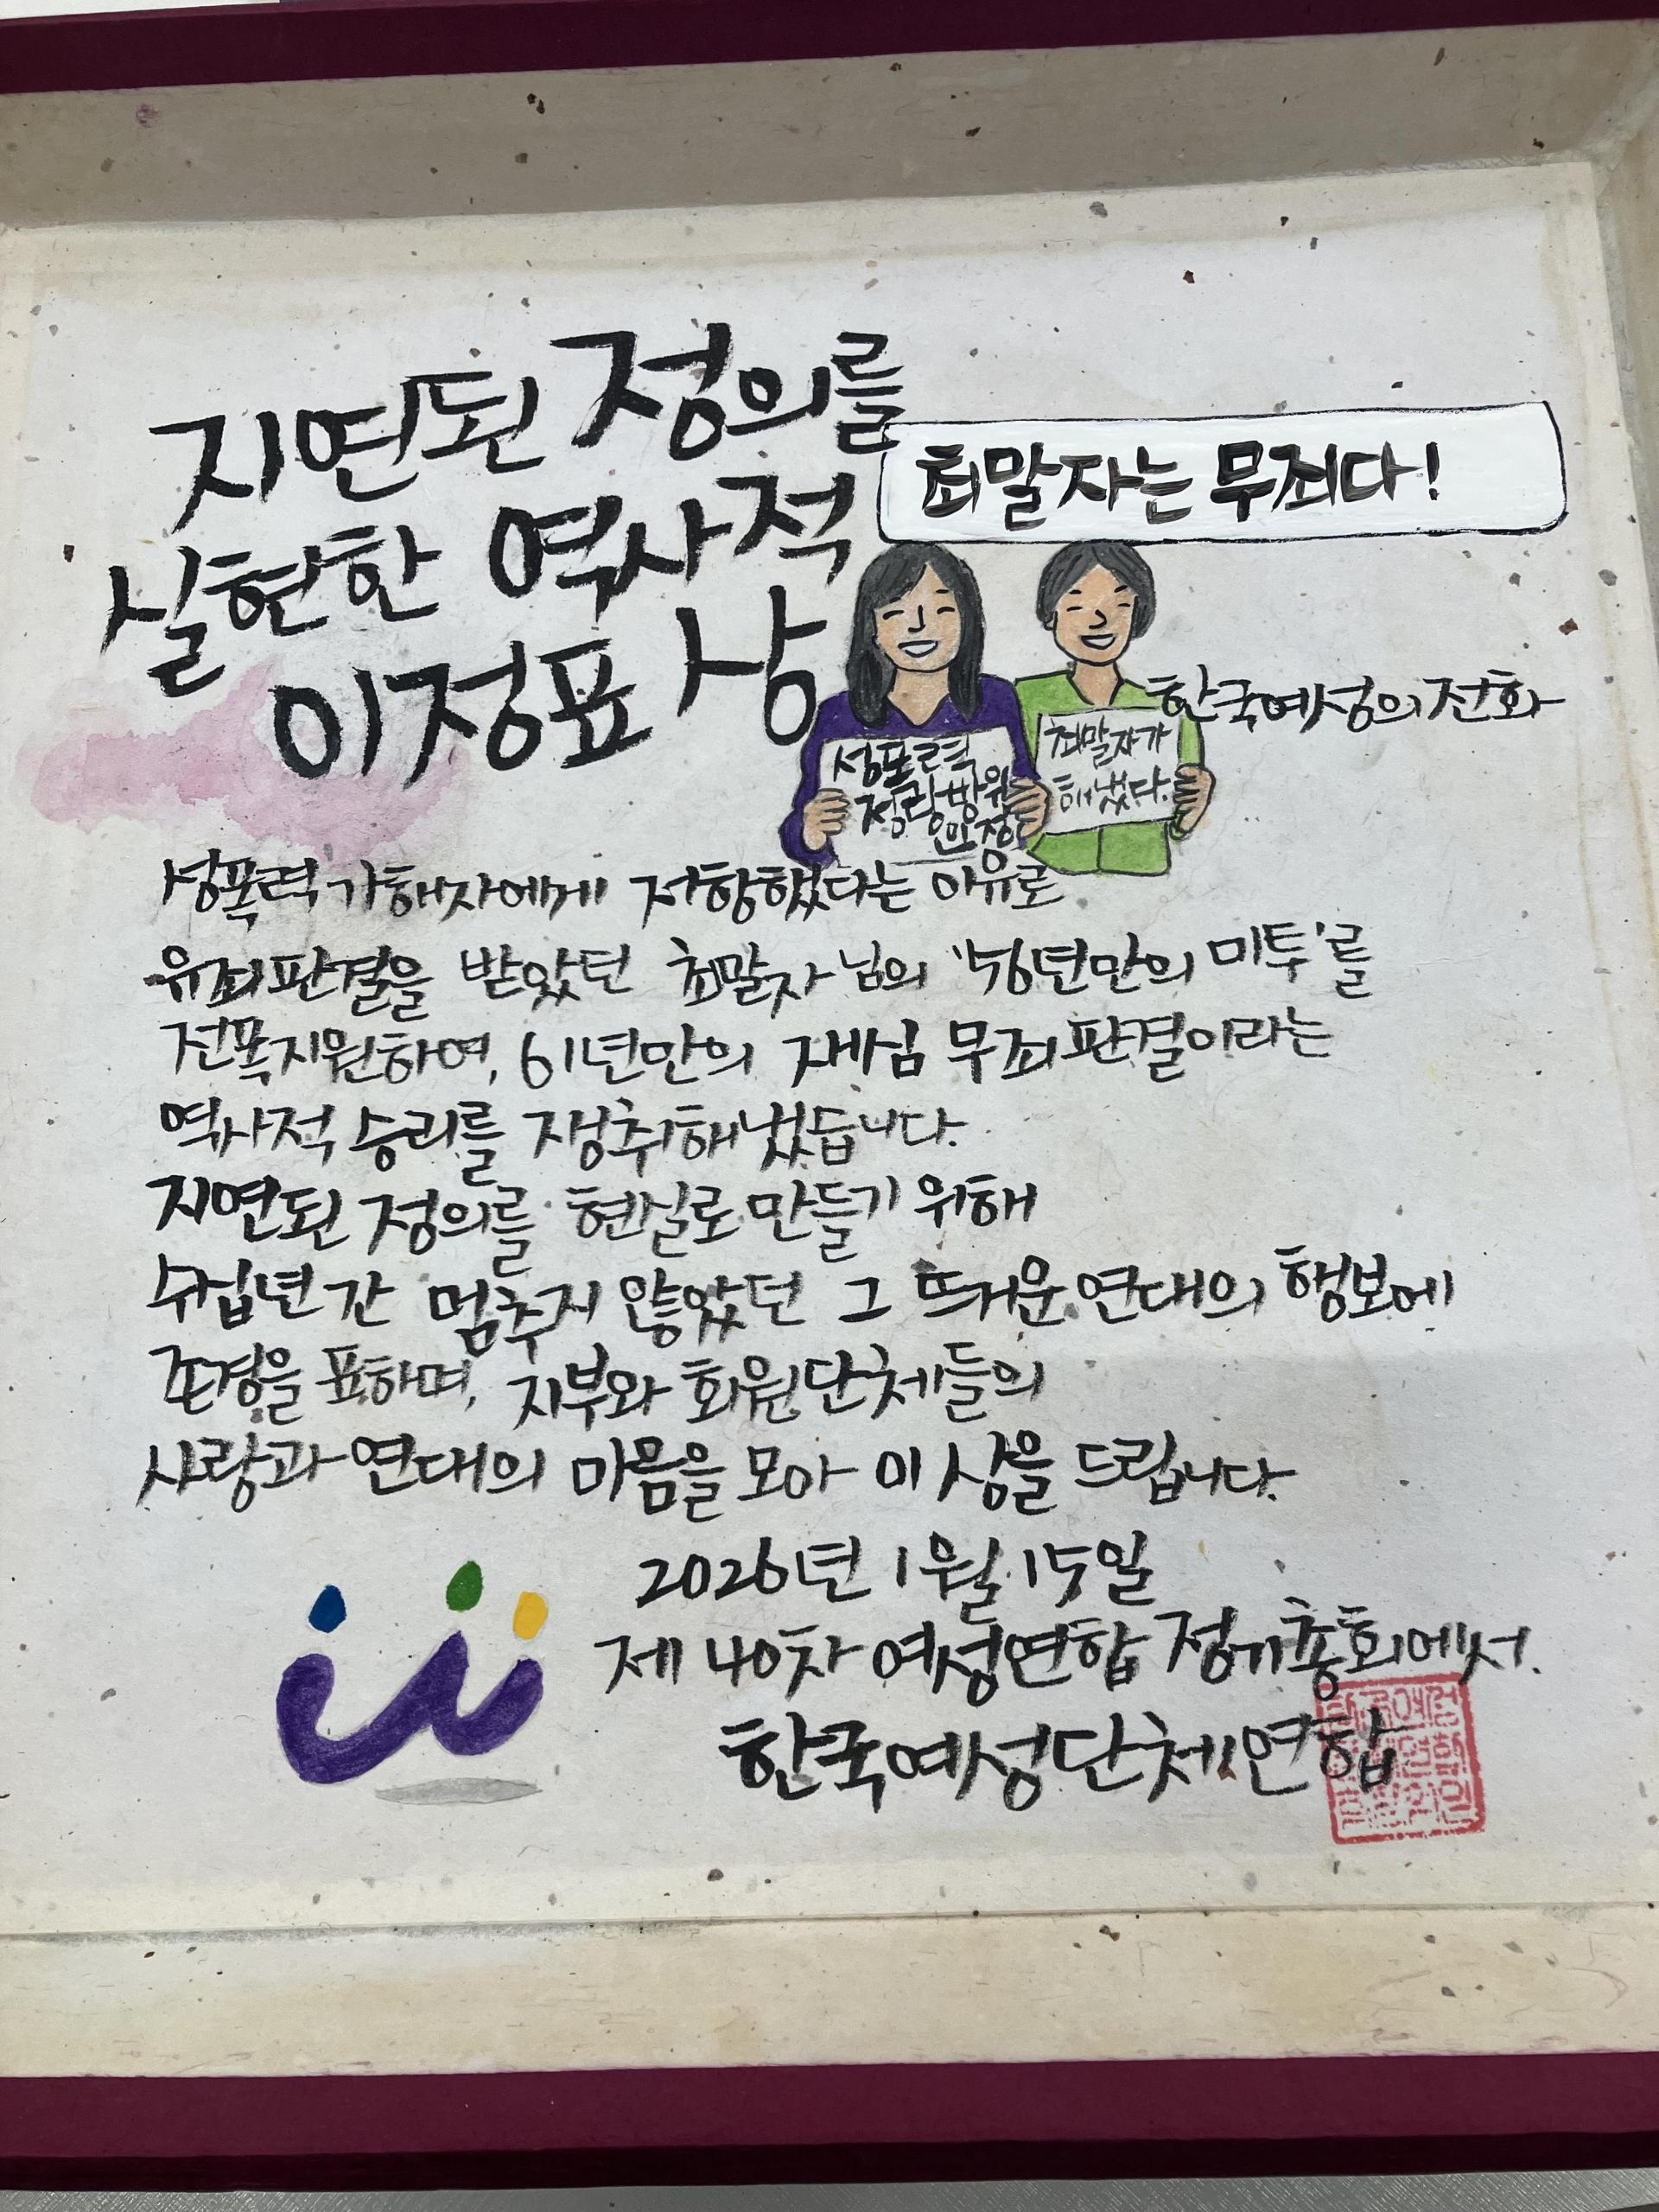 지연된 정의를
실현한 역사적
이정표 상
최말자는 무죄다!
한국여성의전화
성폭력
정당방위
인정
최말자가
해냈다.
성폭력 가해자에게 저항했다는 이유로
유죄판결을 받았던 최말자 님의 '56년만의 미투'를
전폭지원하여, 61년만의 재심 무죄판결이라는
역사적 승리를 쟁취해냈습니다.
지연된 정의를 현실로 만들기 위해
수십년 간 멈추지 않았던 그 뜨거운 연대의 행보에
존경을 표하며, 지부와 회원단체들의
사랑과 연대의 마음을 모아 이 상을 드립니다.
2026년 1월 15일
제 40차 여성연합 정기총회에서.
한국여성단체연합